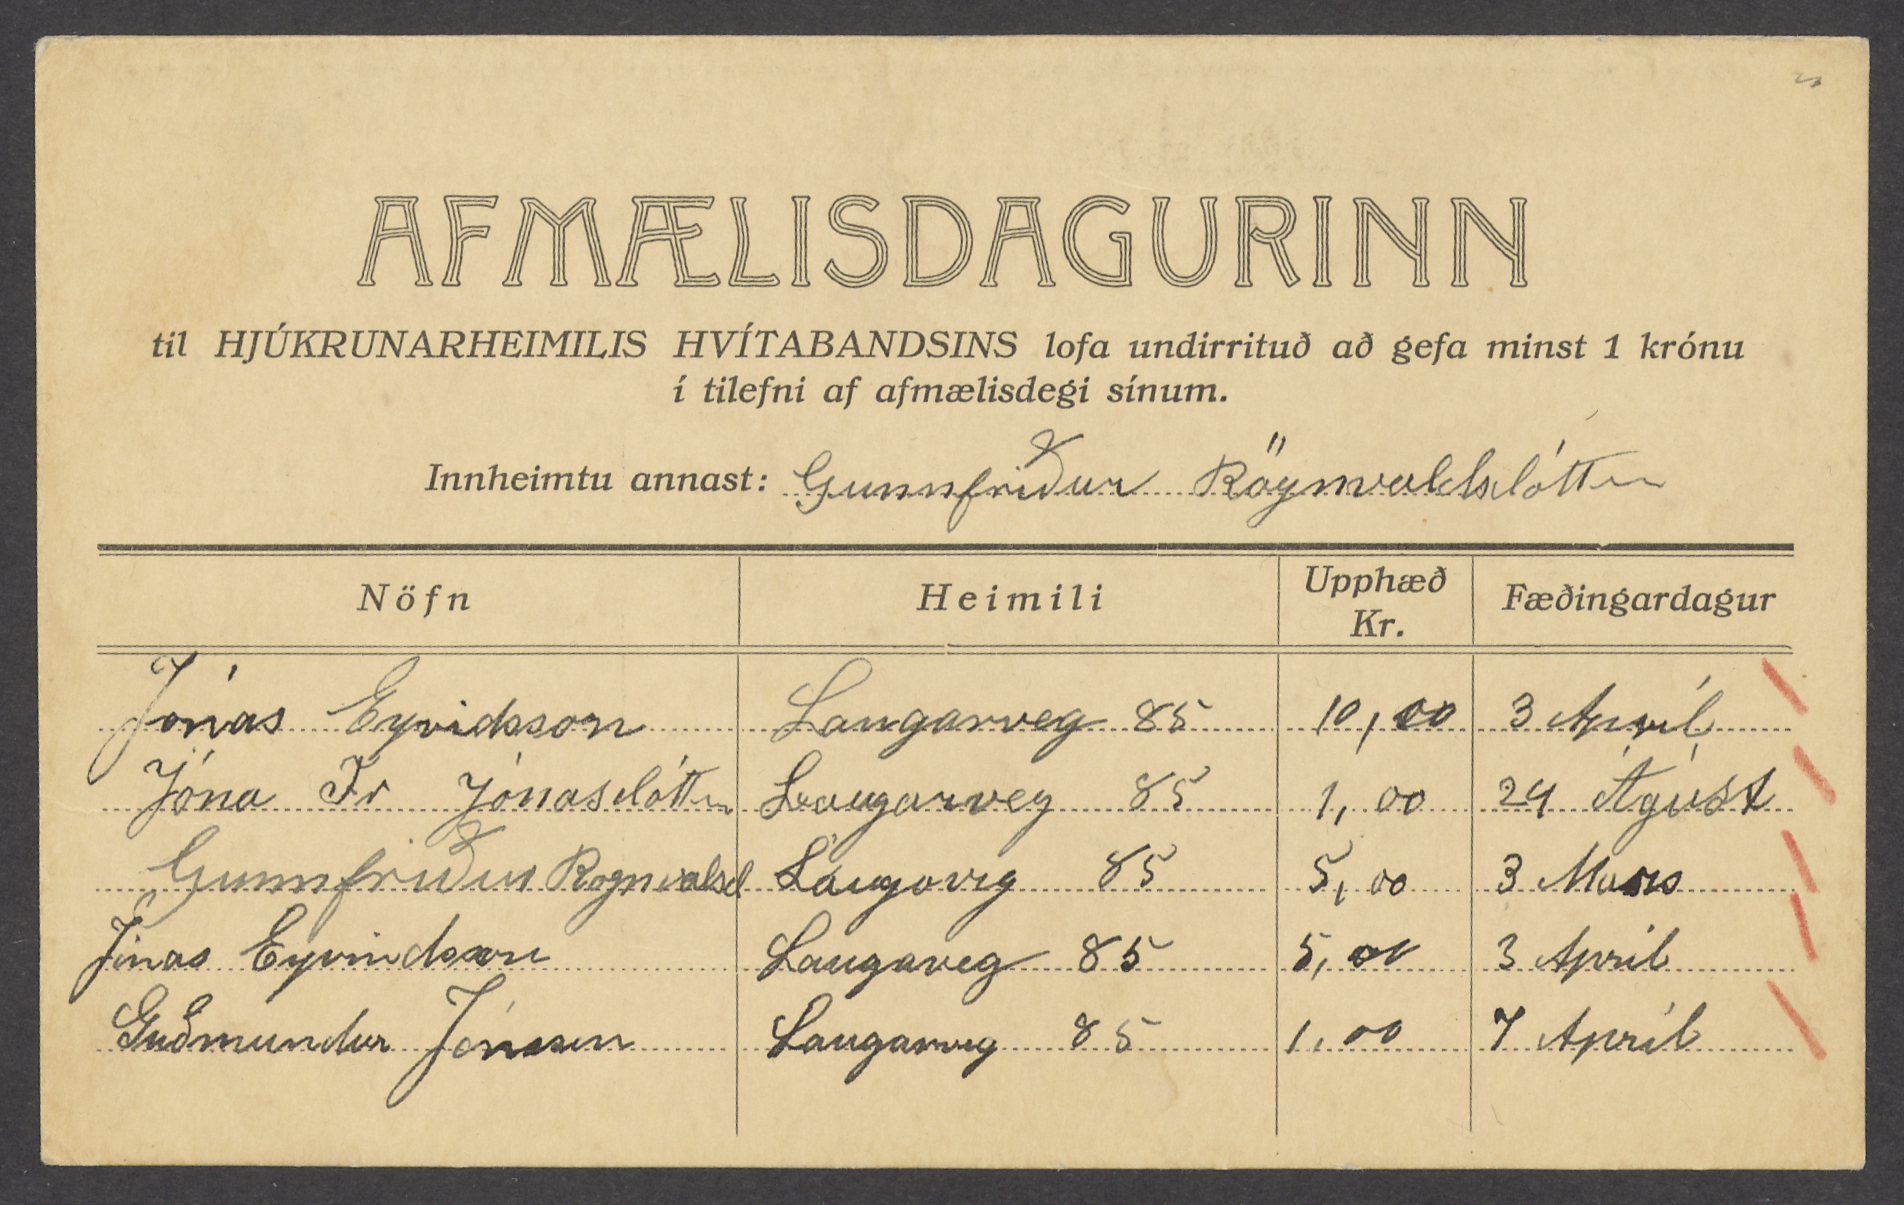 AFMÆLISDAGURINN
til HJÚKRUNARHEIMILIS HVÍTABANDSINS lofa undirrituð að gefa minst 1 krónu
í tilefni af afmælisdegi sínum.
Innheimtu annast: Gunnfriður Rögnvaldsdóttir
Nöfn Heimili Upphæð Kr. Fæðingardagur
Jónas Eyvidsson Laugarveg 85 10,00 3 April
Jóna Fr Jónasdóttir Laugarveg 85 1,00 24 Ágúst
Gunnfriður Rognvalsd Laugaveg 85 5,00 3 Mars
Jónas Eyvindsson Laugaveg 85 5,00 3 April
Guðmundur Jónsson Laugarveg 85 1,00 7 April